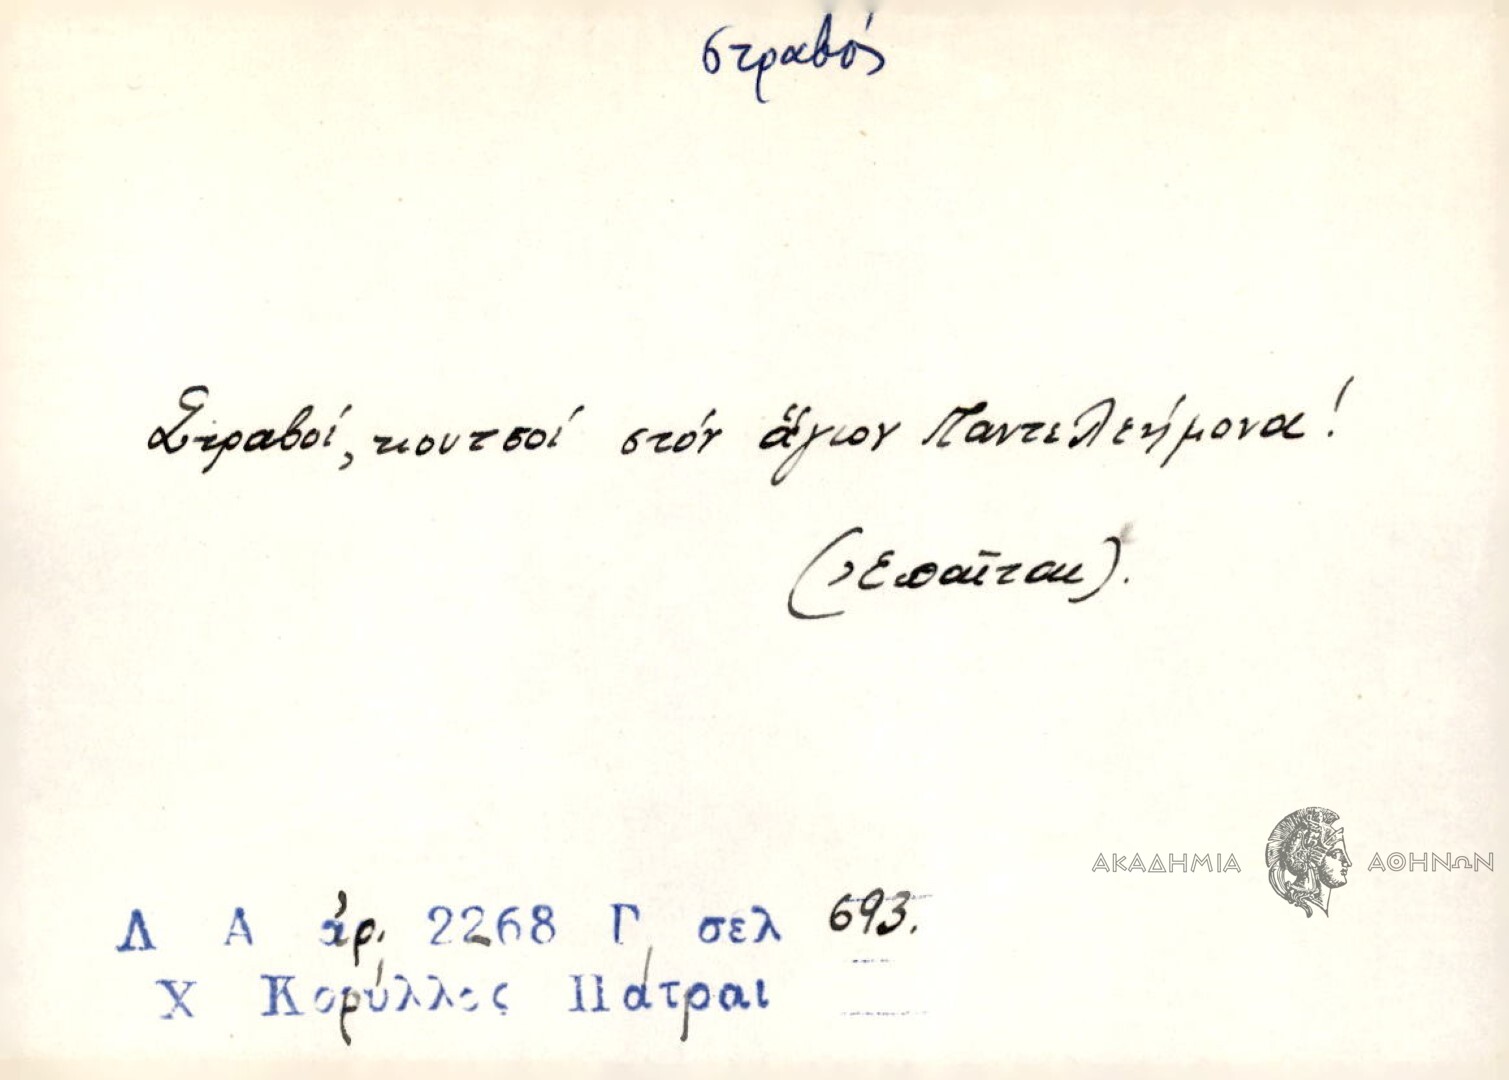 στραβός
Στραβοί, κουτσοί στόν ἅγιον Παντελεήμονα!
(Ἐπαῖται).
ΑΚΑΔΗΜΙΑ ΑΘΗΝΩΝ
Λ Α ἀρ. 2268 Γ σελ 693.
Χ Κορύλλος Πάτραι